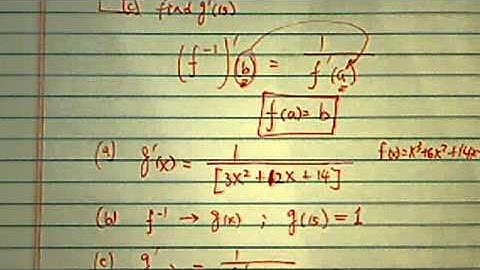 (c) find g'(15)
(f⁻¹)'(b) = 1 / f'(a)
f(a) = b
(a) g'(x) = 1 / [3x² + 12x + 14] f(x) = x³+6x²+14x
(b) f⁻¹ → g(x) ; g(15) = 1
(c) g' = 1